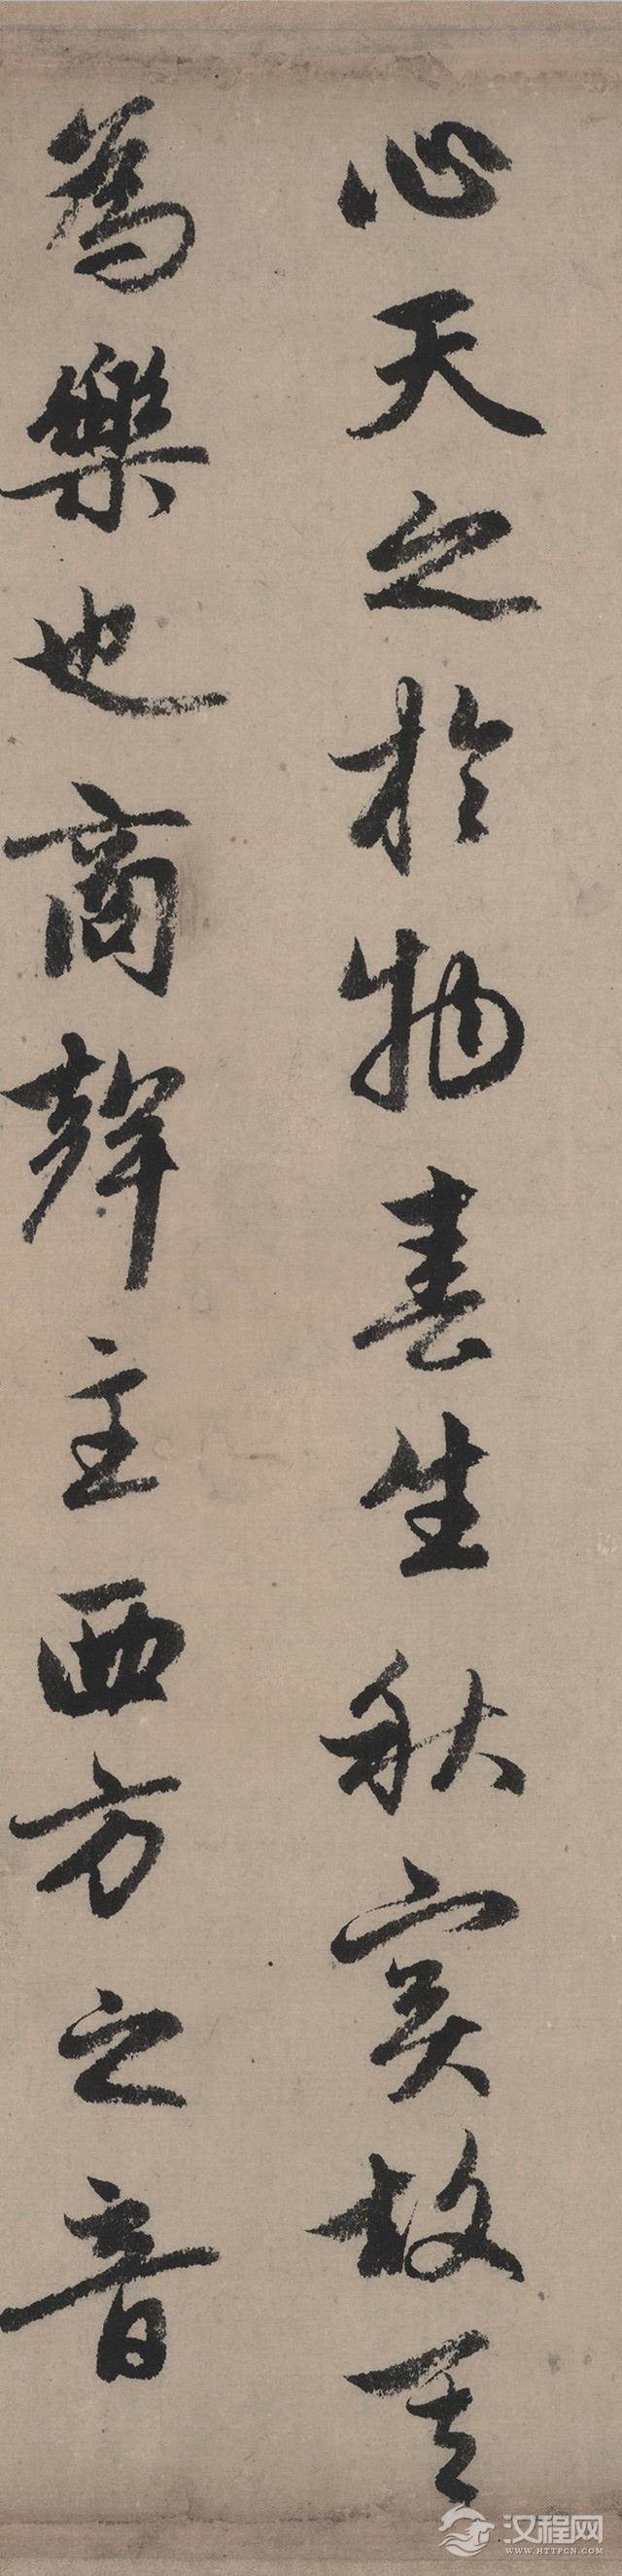 心天之於物春生秋實故其
為樂也商聲主西方之音
汉程网
WWW.HTTPCN.COM